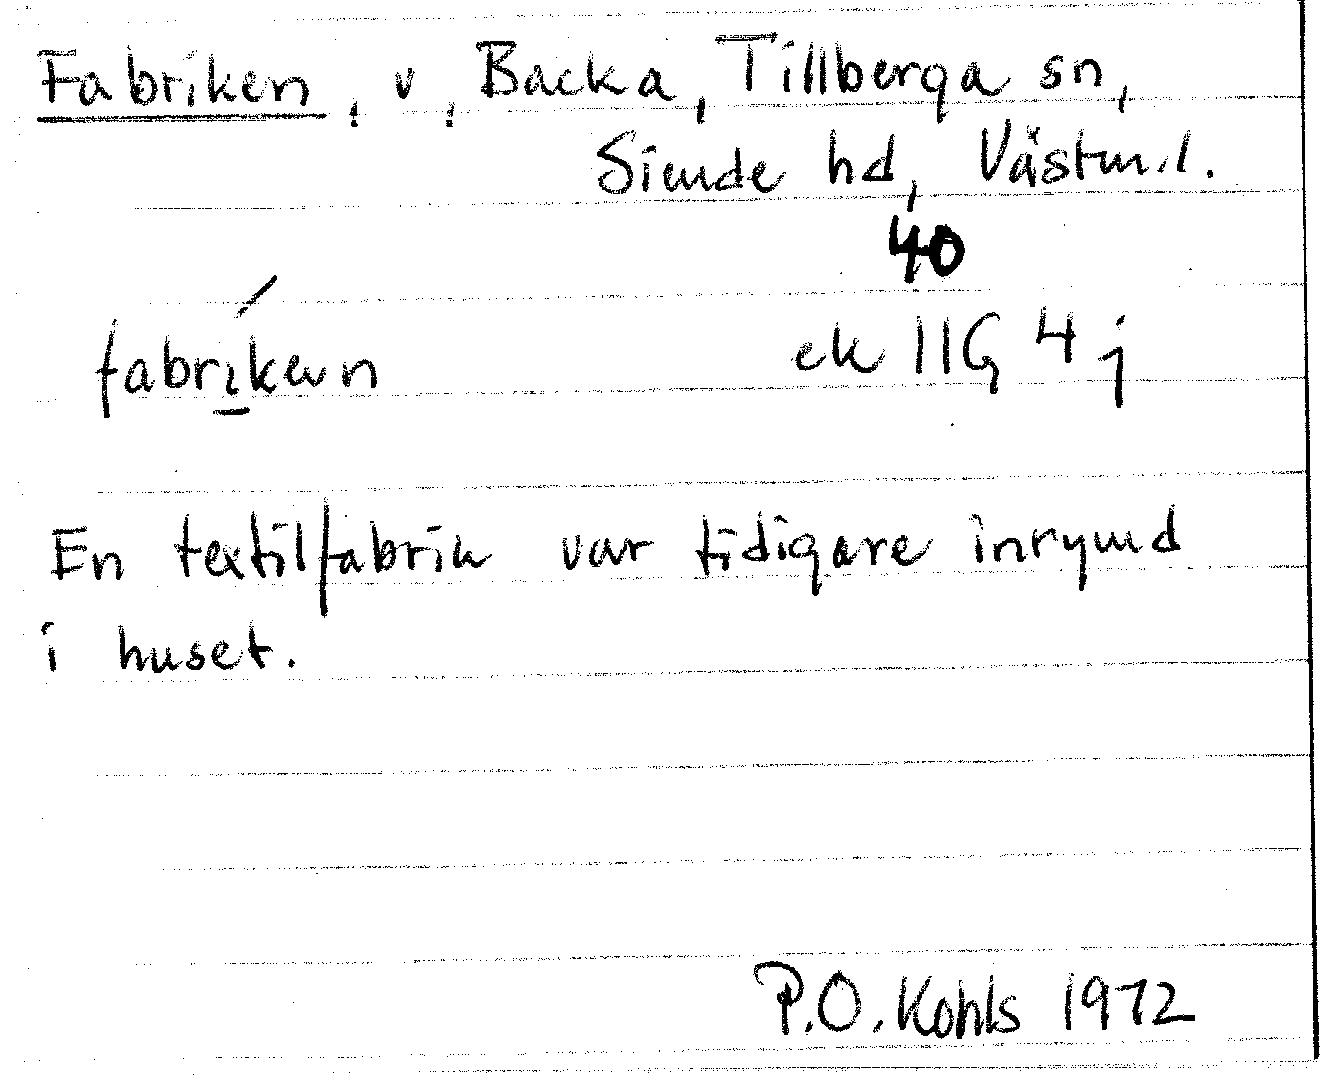 Fabriken, v, Backa, Tillberga sn,
Siende hd, Västml.
40
fabríkən ek 11G 4 j
En textilfabrik var tidigare inrymd
i huset.
P.O. Kohls 1972